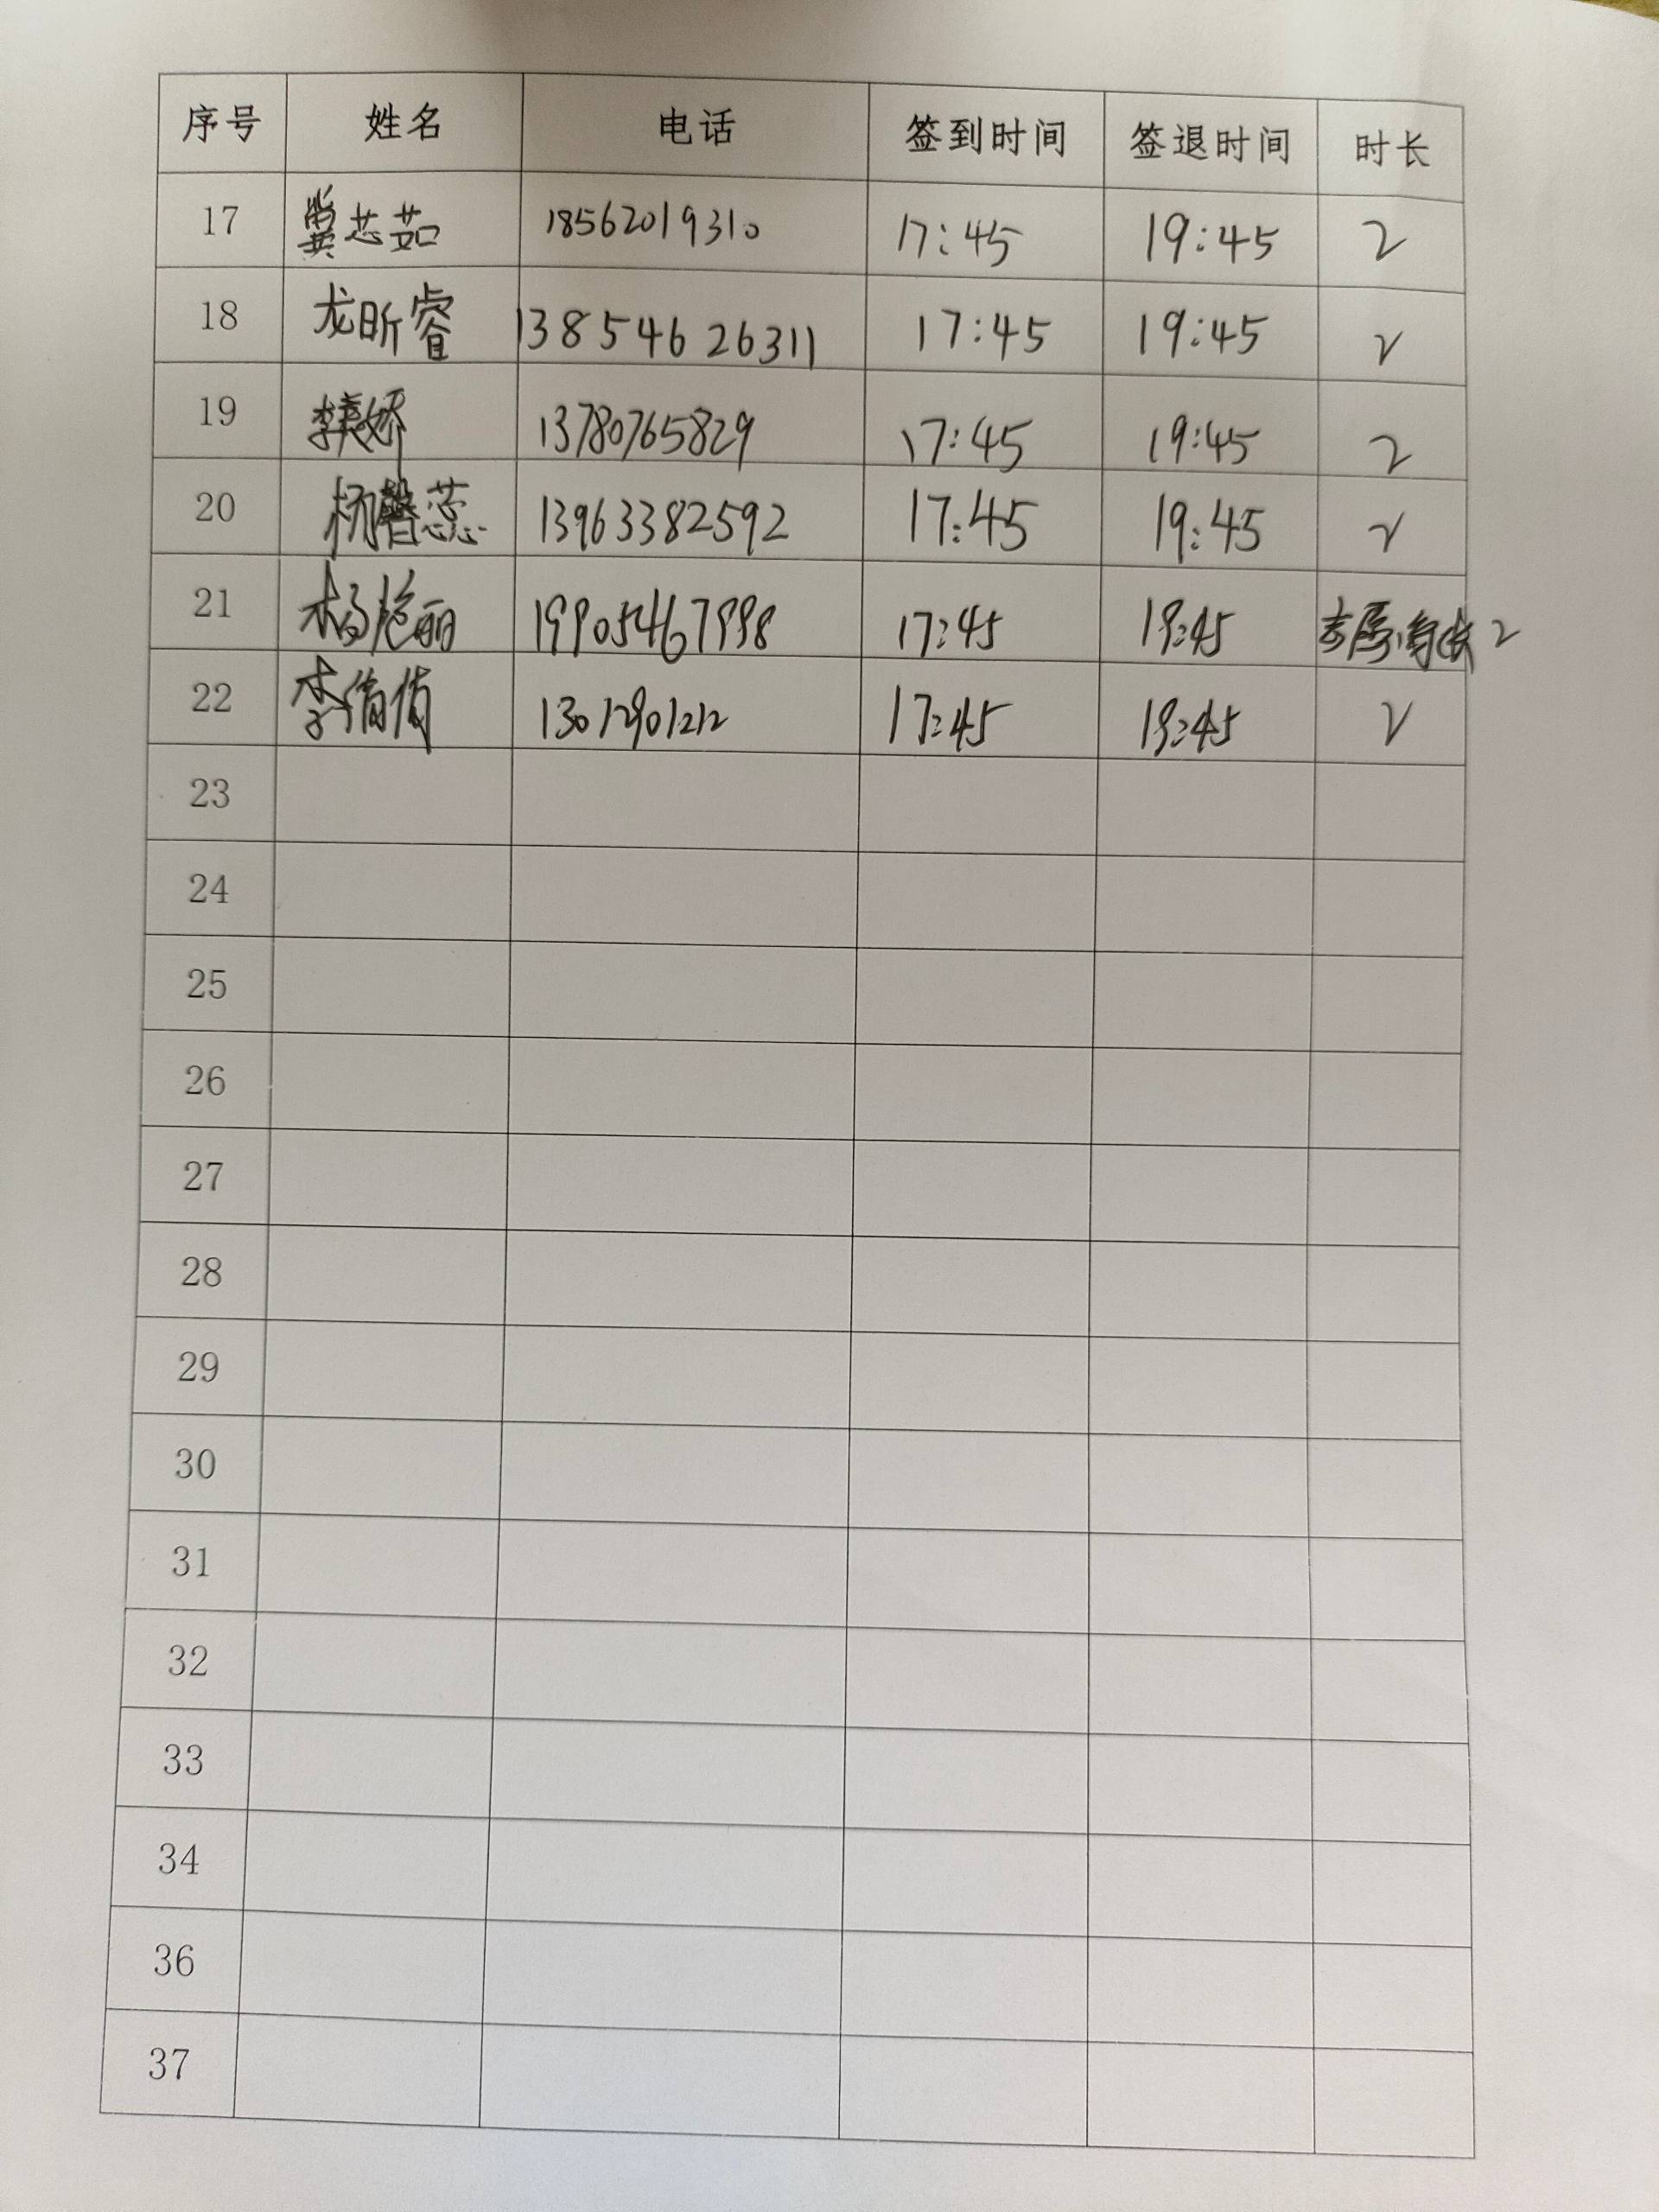 序号 姓名 电话 签到时间 签退时间 时长
17 龚芯茹 18562019310 17:45 19:45 2
18 龙昕睿 13854626311 17:45 19:45 2
19 李奕娇 13780765829 17:45 19:45 2
20 杨馨蕊 13963382592 17:45 19:45 2
21 杨艳丽 19905467998 17:45 19:45 2
22 李倩倩 13012901212 17:45 19:45 2
23
24
25
26
27
28
29
30
31
32
33
34
36
37